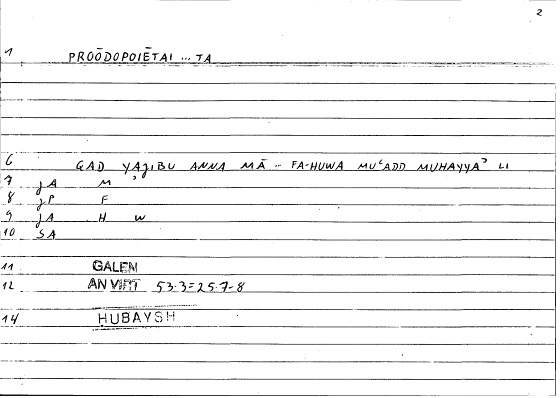 2
1 PROŌDOPOIĒTAI ... TA
6 GAD YAJIBU ANNA MĀ .. FA-HUWA MUʿADD MUHAYYAʾ LI
7 JA M ʾ
8 JP F
9 JA H W
10 SA
11 GALEN
12 AN VIRT 53.3=25.7-8
14 ḤUBAYSH